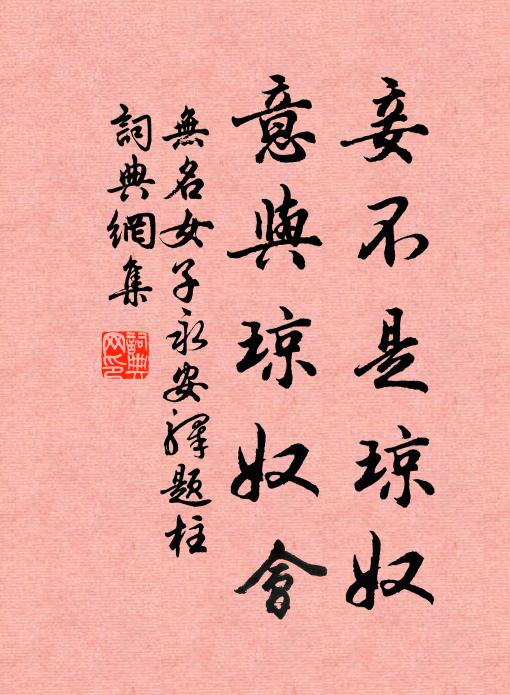 妾不是琼奴
意與琼奴會
無名女子永安驛題柱
詞典網集
詞典網印